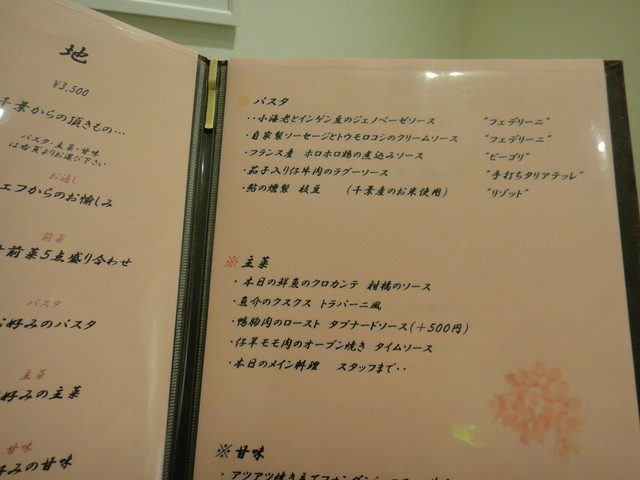 地
¥3,500
千葉からの頂きもの…
パスタ・主菜・甘味
は右頁よりお選び下さい
お通し
シェフからのお愉しみ
前菜
前菜5点盛り合わせ
パスタ
お好みのパスタ
主菜
お好みの主菜
甘味
お好みの甘味
※パスタ
・小海老とインゲン豆のジェノベーゼソース "フェデリーニ"
・自家製ソーセージとトウモロコシのクリームソース "フェデリーニ"
・フランス産 ホロホロ鶏の煮込みソース "ビーゴリ"
・茄子入り仔牛肉のラグーソース "手打ちタリアテッレ"
・鮎の燻製 枝豆 (千葉産のお米使用) "リゾット"
※主菜
・本日の鮮魚のクロカンテ 柑橘のソース
・魚介のクスクス トラパーニ風
・鴨胸肉のロースト タプナードソース(+500円)
・仔羊モモ肉のオーブン焼き タイムソース
・本日のメイン料理 スタッフまで・・
※甘味
・アツアツ焼き立てフォンダン